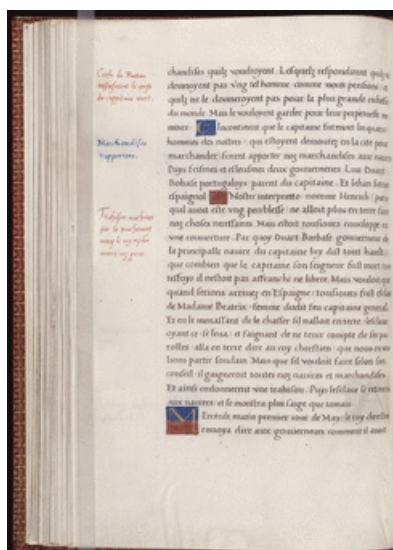 Ceulx de Mattan
reffuserent le corps
du cappitaine mort.
Marchandises
rapportees.
Trahison machinee
par le truchement
chandises quilz vouldroyent. Lesquelz respondirent quilz ne
donneroyent pas vng tel homme comme nous pensions: et
quilz ne le donneroyent pas pour la plus grande richesse
du monde. Mais le vouloyent garder pour leur perpetuelle me
moire. Incontinent que le capitaine fut mort les quatre
hommes des nostres: qui estoyent demourez en la cité pour
marchander: firent apporter noz marchandises aux nauires
Puys feismes et esleusmes deux gouuerneurs. Luis Duart
Bobase portugaloys parent du capitaine. Et Iehan Serran
espaignol. Nostre interprete nomme Henrich: pource
quil auoit esté vng peu blesse: ne alloit plus en terre faire
noz choses necessaires. Mais estoit tousiours enueloppe en
vne couuerture. Par quoy Duart Barbase gouuerneur de
la principalle nauire du capitaine luy dist tout hault:
que combien que le capitaine son seigneur fust mort: tou
tesfoys il nestoit pas affranchi ne libere. Mais vouloit que
quand serions arriuez en Espaigne: tousiours fust esclaue
de Madame Beatrix: femme dudit feu capitaine general.
Et en le menassant de le chasser sil nalloit en terre. lesclaue
oyant ce se leua: et faignant de ne tenir compte de ses pa
rolles: alla en terre dire au roy chrestien: que nous en vou
lions partir soudain. Mais que sil vouloit faire selon son
conseil: il gaigneroit toutes noz nauires et marchandises.
Et ainsi ordonnerent vne trahison. Puys lesclaue se retourna
aux nauires: et se monstra plus saige que iamais.
Mercredi matin premier iour de May: le roy chrestien
enuoya dire aux gouuerneurs comment il auoit